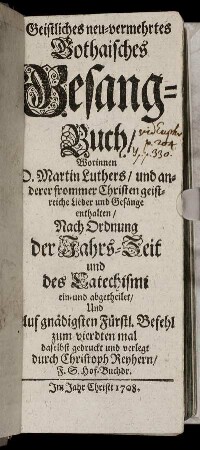 Geistliches neu-vermehrtes
Gothaisches
Gesang-
Buch/
Worinnen
D. Martin Luthers/ und an-
derer frommer Christen geist-
reiche Lieder und Gesänge
enthalten/
Nach Ordnung
der Jahrs-Zeit
und
des Catechismi
ein-und abgetheilet/
Und
Auf gnädigsten Fürstl. Befehl
zum vierdten mal
daselbst gedruckt und verlegt
durch Christoph Reyhern/
F. S. Hof-Buchdr.
Im Jahr Christi 1708.